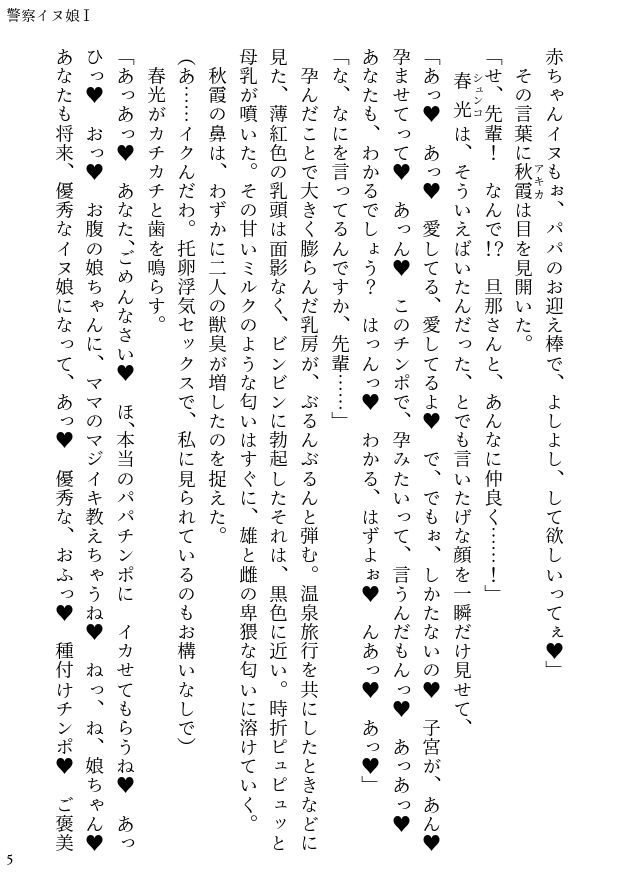 警察イヌ娘Ⅰ
赤ちゃんイヌもぉ、パパのお迎え棒で、よしよし、して欲しいってぇ♥」
その言葉に秋霞（アキカ）は目を見開いた。
「せ、先輩！　なんで!?　旦那さんと、あんなに仲良く……！」
春光（シュンコ）は、そういえばいたんだった、とでも言いたげな顔を一瞬だけ見せて、
「あっ♥　あっ♥　愛してる、愛してるよ♥　で、でもぉ、しかたないの♥　子宮が、あん♥
孕ませてって♥　あっん♥　このチンポで、孕みたいって、言うんだもんっ♥　あっあっ♥
あなたも、わかるでしょう？　はっんっ♥　わかる、はずよぉ♥　んあっ♥　あっ♥」
「な、なにを言ってるんですか、先輩……」
孕んだことで大きく膨らんだ乳房が、ぶるんぶるんと弾む。温泉旅行を共にしたときなどに
見た、薄紅色の乳頭は面影なく、ビンビンに勃起したそれは、黒色に近い。時折ピュピュッと
母乳が噴いた。その甘いミルクのような匂いはすぐに、雄と雌の卑猥な匂いに溶けていく。
秋霞の鼻は、わずかに二人の獣臭が増したのを捉えた。
(あ……イクんだわ。托卵浮気セックスで、私に見られているのもお構いなしで)
春光がカチカチと歯を鳴らす。
「あっあっ♥　あなた、ごめんなさい♥　ほ、本当のパパチンポに　イカせてもらうね♥　あっ
ひっ♥　おっ♥　お腹の娘ちゃんに、ママのマジイキ教えちゃうね♥　ねっ、ね、娘ちゃん♥
あなたも将来、優秀なイヌ娘になって、あっ♥　優秀な、おふっ♥　種付けチンポ♥　ご褒美
5